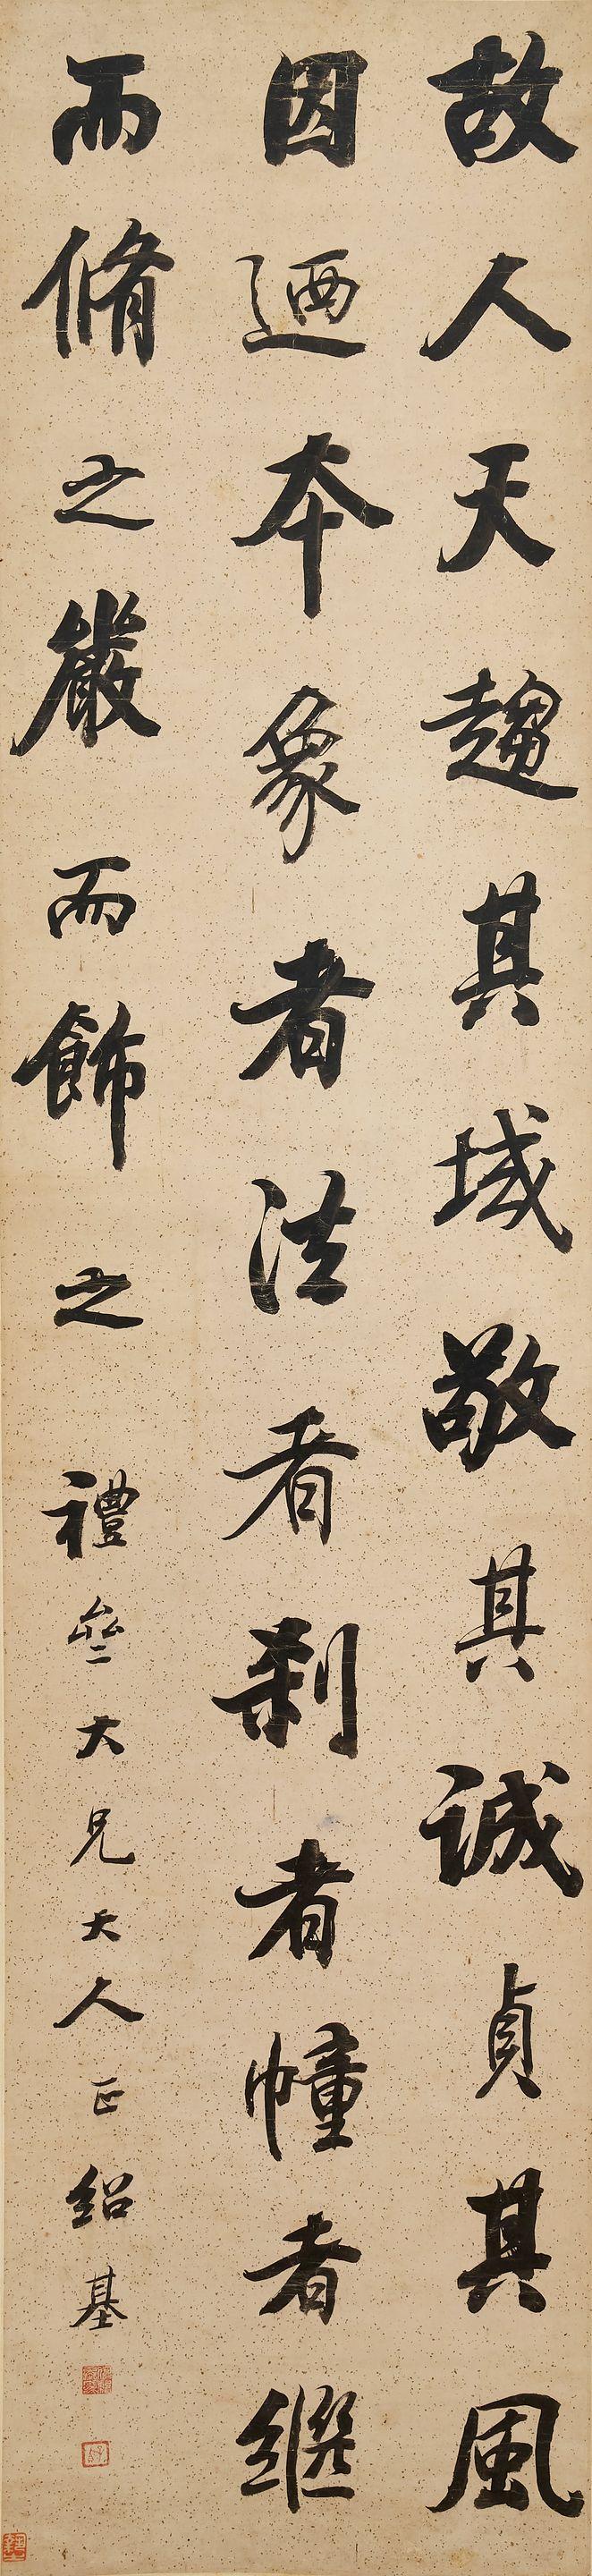 故人天趨其域敬其誠貞其風
因迺本象者法者刹者幢者繼
而脩之嚴而飾之 禮大兄大人正 紹基